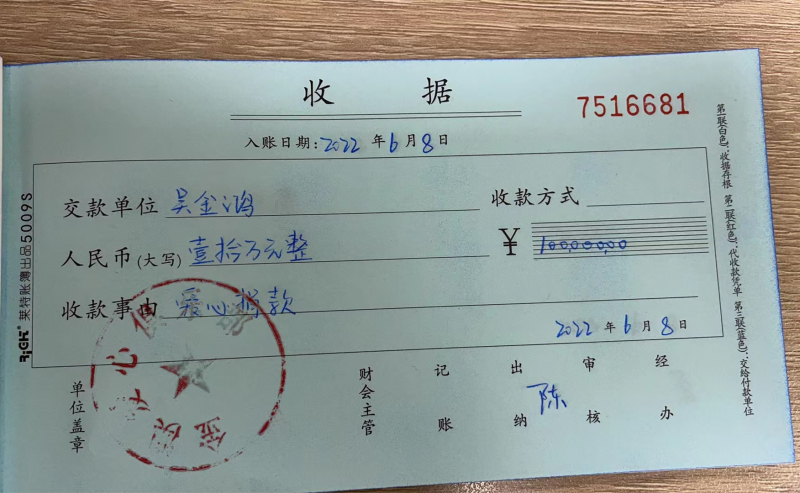 收据
7516681
入账日期:2022年6月8日
交款单位 吴金鸿 收款方式
人民币(大写) 壹拾万元整 ¥ 100,000,00
收款事由 爱心捐款
2022年6月8日
单位盖章 财会主管 记账 出纳 陈 审核 经办
莱特账簿出品5009S
第一联(白色):收据存根 第二联(红色):代收款凭单 第三联(蓝色):交给付款单位